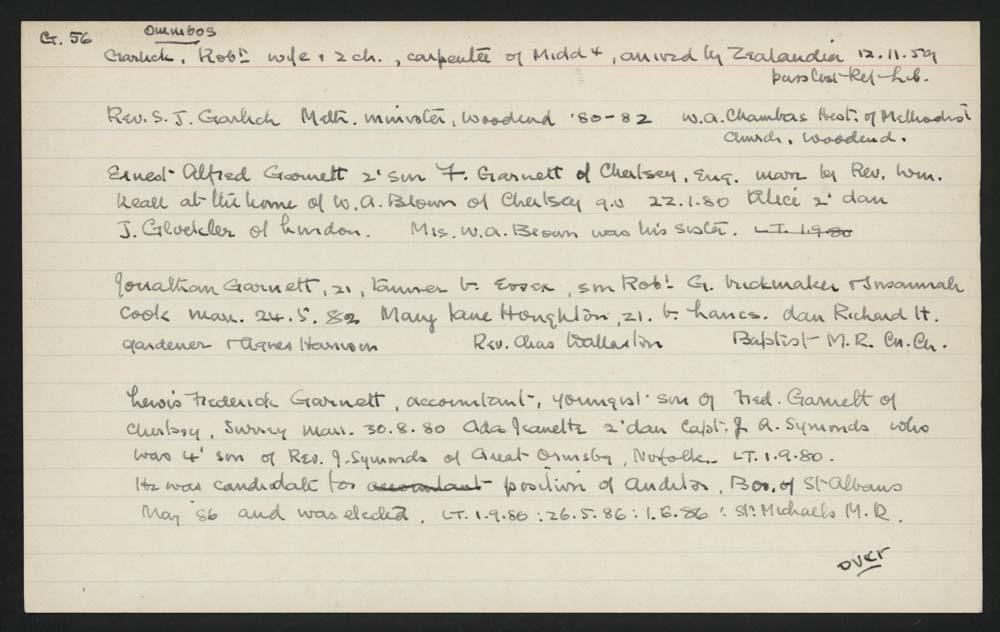 G. 56 Omnibos
Garlick, Robt. wife & 2 ch., carpenter of Middx, arrived by Zealandia 12.11.59
pass list Ref-Lib.
Rev. S. J. Garlick Meth. minister, Woodend '80-82 W.A. Chambers Hist. of Methodist
Church, Woodend.
Ernest Alfred Garnett 2' son F. Garnett of Chertsey, Eng. marr by Rev. Wm.
Keall at the home of W.A. Brown of Chertsey q.v 22.1.80 Alice 2' dau
J. Gloekler of London. Mrs. W.A. Brown was his sister. L.T. 1.9.80
Jonathan Garnett, 21, b. Essex, son Robt. G. brickmaker & Susannah
Cook marr. 24.5.82 Mary Jane Houghton, 21. b. Lancs. dau Richard H.
gardener & Agnes Harrison Rev. Chas Dallaston Baptist M.R. Ch.Ch.
Lewis Frederick Garnett, accountant, youngest son of Fred. Garnett of
Chertsey, Surrey marr. 30.8.80 Ada Jeanette 2'dau Capt. J. A. Symonds who
was 4' son of Rev. J. Symonds of Great Ormsby, Norfolk. L.T. 1.9.80.
He was candidate for accountant position of Auditor, Boro, of St Albans
May '86 and was elected. L.T. 1.9.80 : 26.5.86 : 1.6.86 : St. Michaels M.R.
over